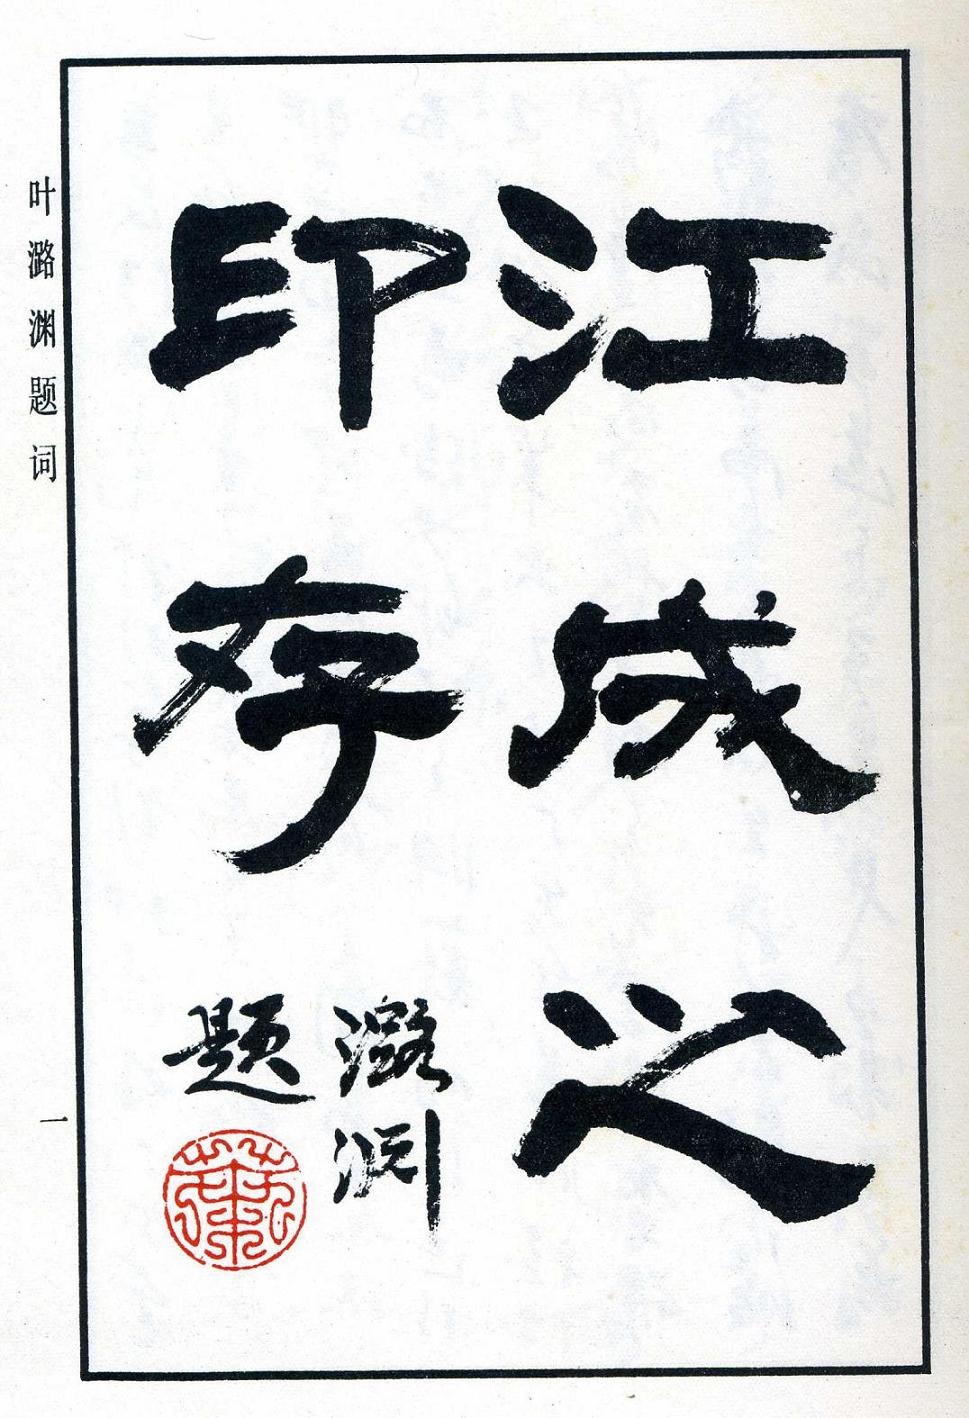 江成之
印存
潞渊
题
葉
叶潞渊题词
一